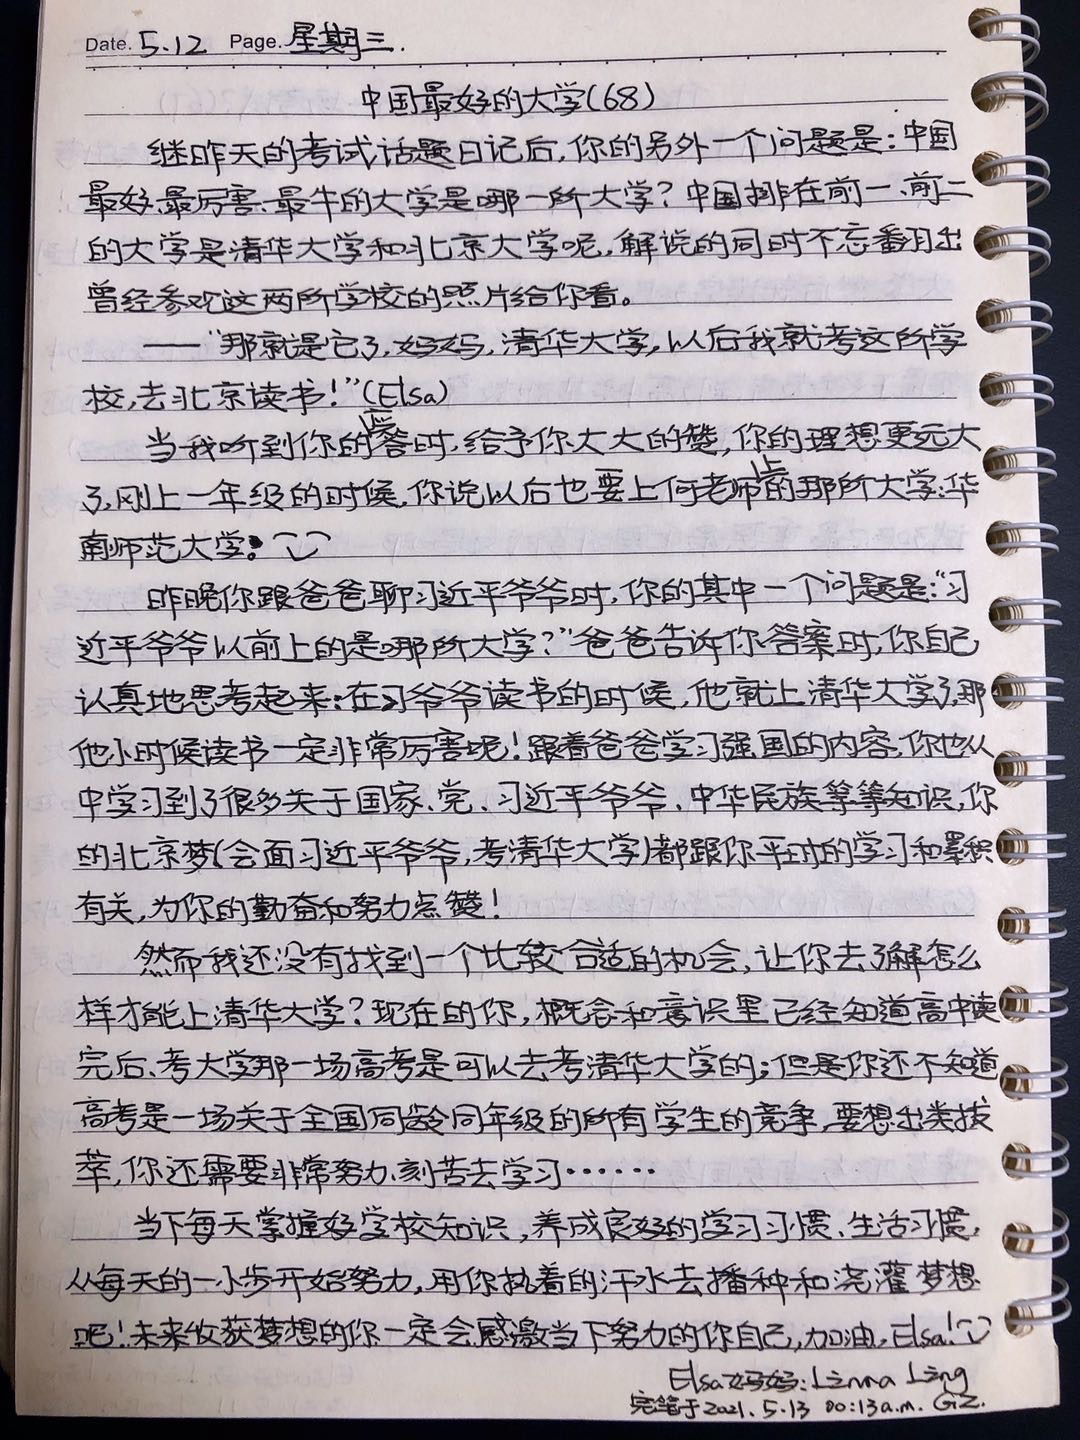 Date. 5.12 Page. 星期三.
中国最好的大学(68)
继昨天的考试话题日记后,你的另外一个问题是:中国
最好、最厉害、最牛的大学是哪一所大学?中国排在前一、前二
的大学是清华大学和北京大学呢,解说的同时不忘翻出
曾经参观这两所学校的照片给你看。
——“那就是它了,妈妈,清华大学,以后我就考这所学
校,去北京读书!”(Elsa)
当我听到你的回答时,给予你大大的赞,你的理想更远大
了,刚上一年级的时候,你说以后也要上何老师上的那所大学:华
南师范大学。
昨晚你跟爸爸聊习近平爷爷时,你的其中一个问题是:“习
近平爷爷以前上的是哪所大学?”爸爸告诉你答案时,你自己
认真地思考起来:在习爷爷读书的时候,他就上清华大学了,那
他小时候读书一定非常厉害呢!跟着爸爸学习强国的内容,你也从
中学习到了很多关于国家、党、习近平爷爷、中华民族等等知识,你
的北京梦(会面习近平爷爷,考清华大学)都跟你平时的学习和累积
有关,为你的勤奋和努力点赞!
然而我还没有找到一个比较合适的机会,让你去了解怎么
样才能上清华大学?现在的你,概念和意识里已经知道高中读
完后、考大学那一场高考是可以去考清华大学的;但是你还不知道
高考是一场关于全国同龄同年级的所有学生的竞争,要想出类拔
萃,你还需要非常努力、刻苦去学习……
当下每天掌握好学校知识,养成良好的学习习惯、生活习惯,
从每天的一小步开始努力,用你执着的汗水去播种和浇灌梦想
吧!未来收获梦想的你一定会感激当下努力的你自己,加油,Elsa!
Elsa妈妈:Linna Ling
完笔于2021.5.13 00:13a.m. GZ.